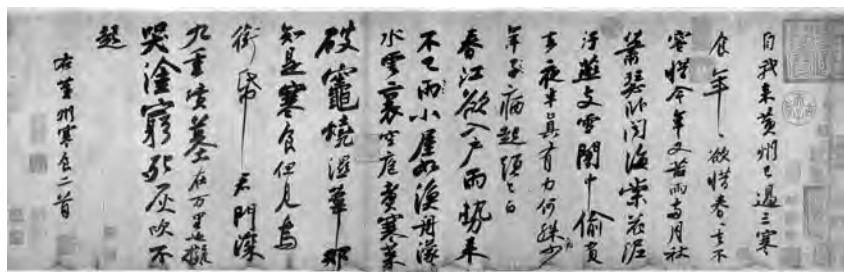 自我來黃州已過三寒
食年、欲惜春、去不
容惜今年又苦雨兩月秋
蕭瑟臥聞海棠花泥
汙燕支雪闇中偷負
去夜半真有力何殊病少
年子病起須已白
春江欲入戶雨勢來
不已雨小屋如漁舟濛、
水雲裏空庖煮寒菜
破竈燒濕葦那
知是寒食但見烏
銜帋君門深
九重墳墓在万里也擬
哭塗窮死灰吹不
起
右黃州寒食二首